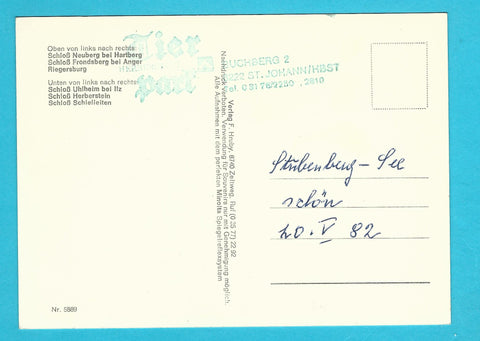 Oben von links nach rechts:
Schloß Neuberg bei Hartberg
Schloß Frondsberg bei Anger
Riegersburg
Unten von links nach rechts:
Schloß Uhlheim bei Ilz
Schloß Herberstein
Schloß Schielleiten
Tier
park
BUCHBERG 2
8222 ST. JOHANN/HBST
Tel. 0 31 76/2250
2810
Verlag F. Hruby, 8740 Zeltweg, Ruf (0 35 77) 22 92
Nachdruck verboten. Verwendung für Souvenirs nur mit Genehmigung möglich.
Alle Aufnahmen mit dem perfekten Minolta Spiegelreflexsystem
Stubenberg – See
schön
20. V 82
Nr. 5889